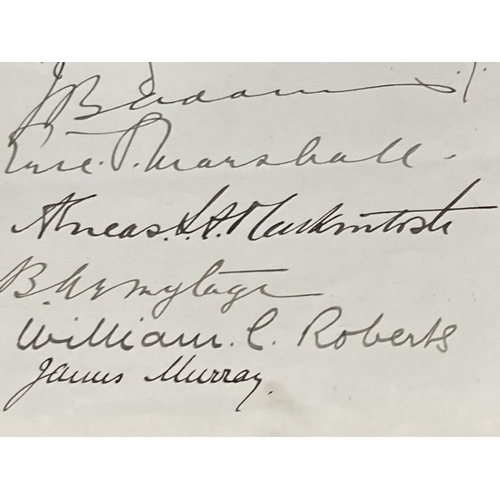 J B Adams
Eric. S. Marshall.
Æneas. L. A. Mackintosh
B. Armytage
William. C. Roberts
James Murray.